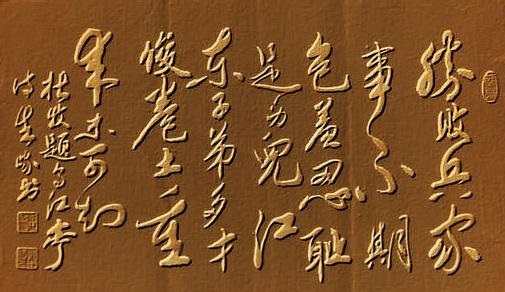 勝败兵家
事不期
包羞忍耻
是男兒江
东子弟多才
俊卷土重
来未可知
杜牧题乌江亭
诗